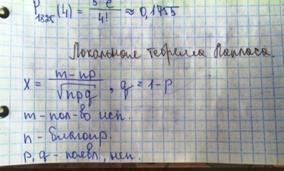 P₁₈₂₅(4) = 5 e / 4! ≈ 0,1755
Локальная теорема Лапласа.
x = m - np / √npq , q = 1 - p
m - кол-во исп.
n - благопр.
p, q - появл., неп.